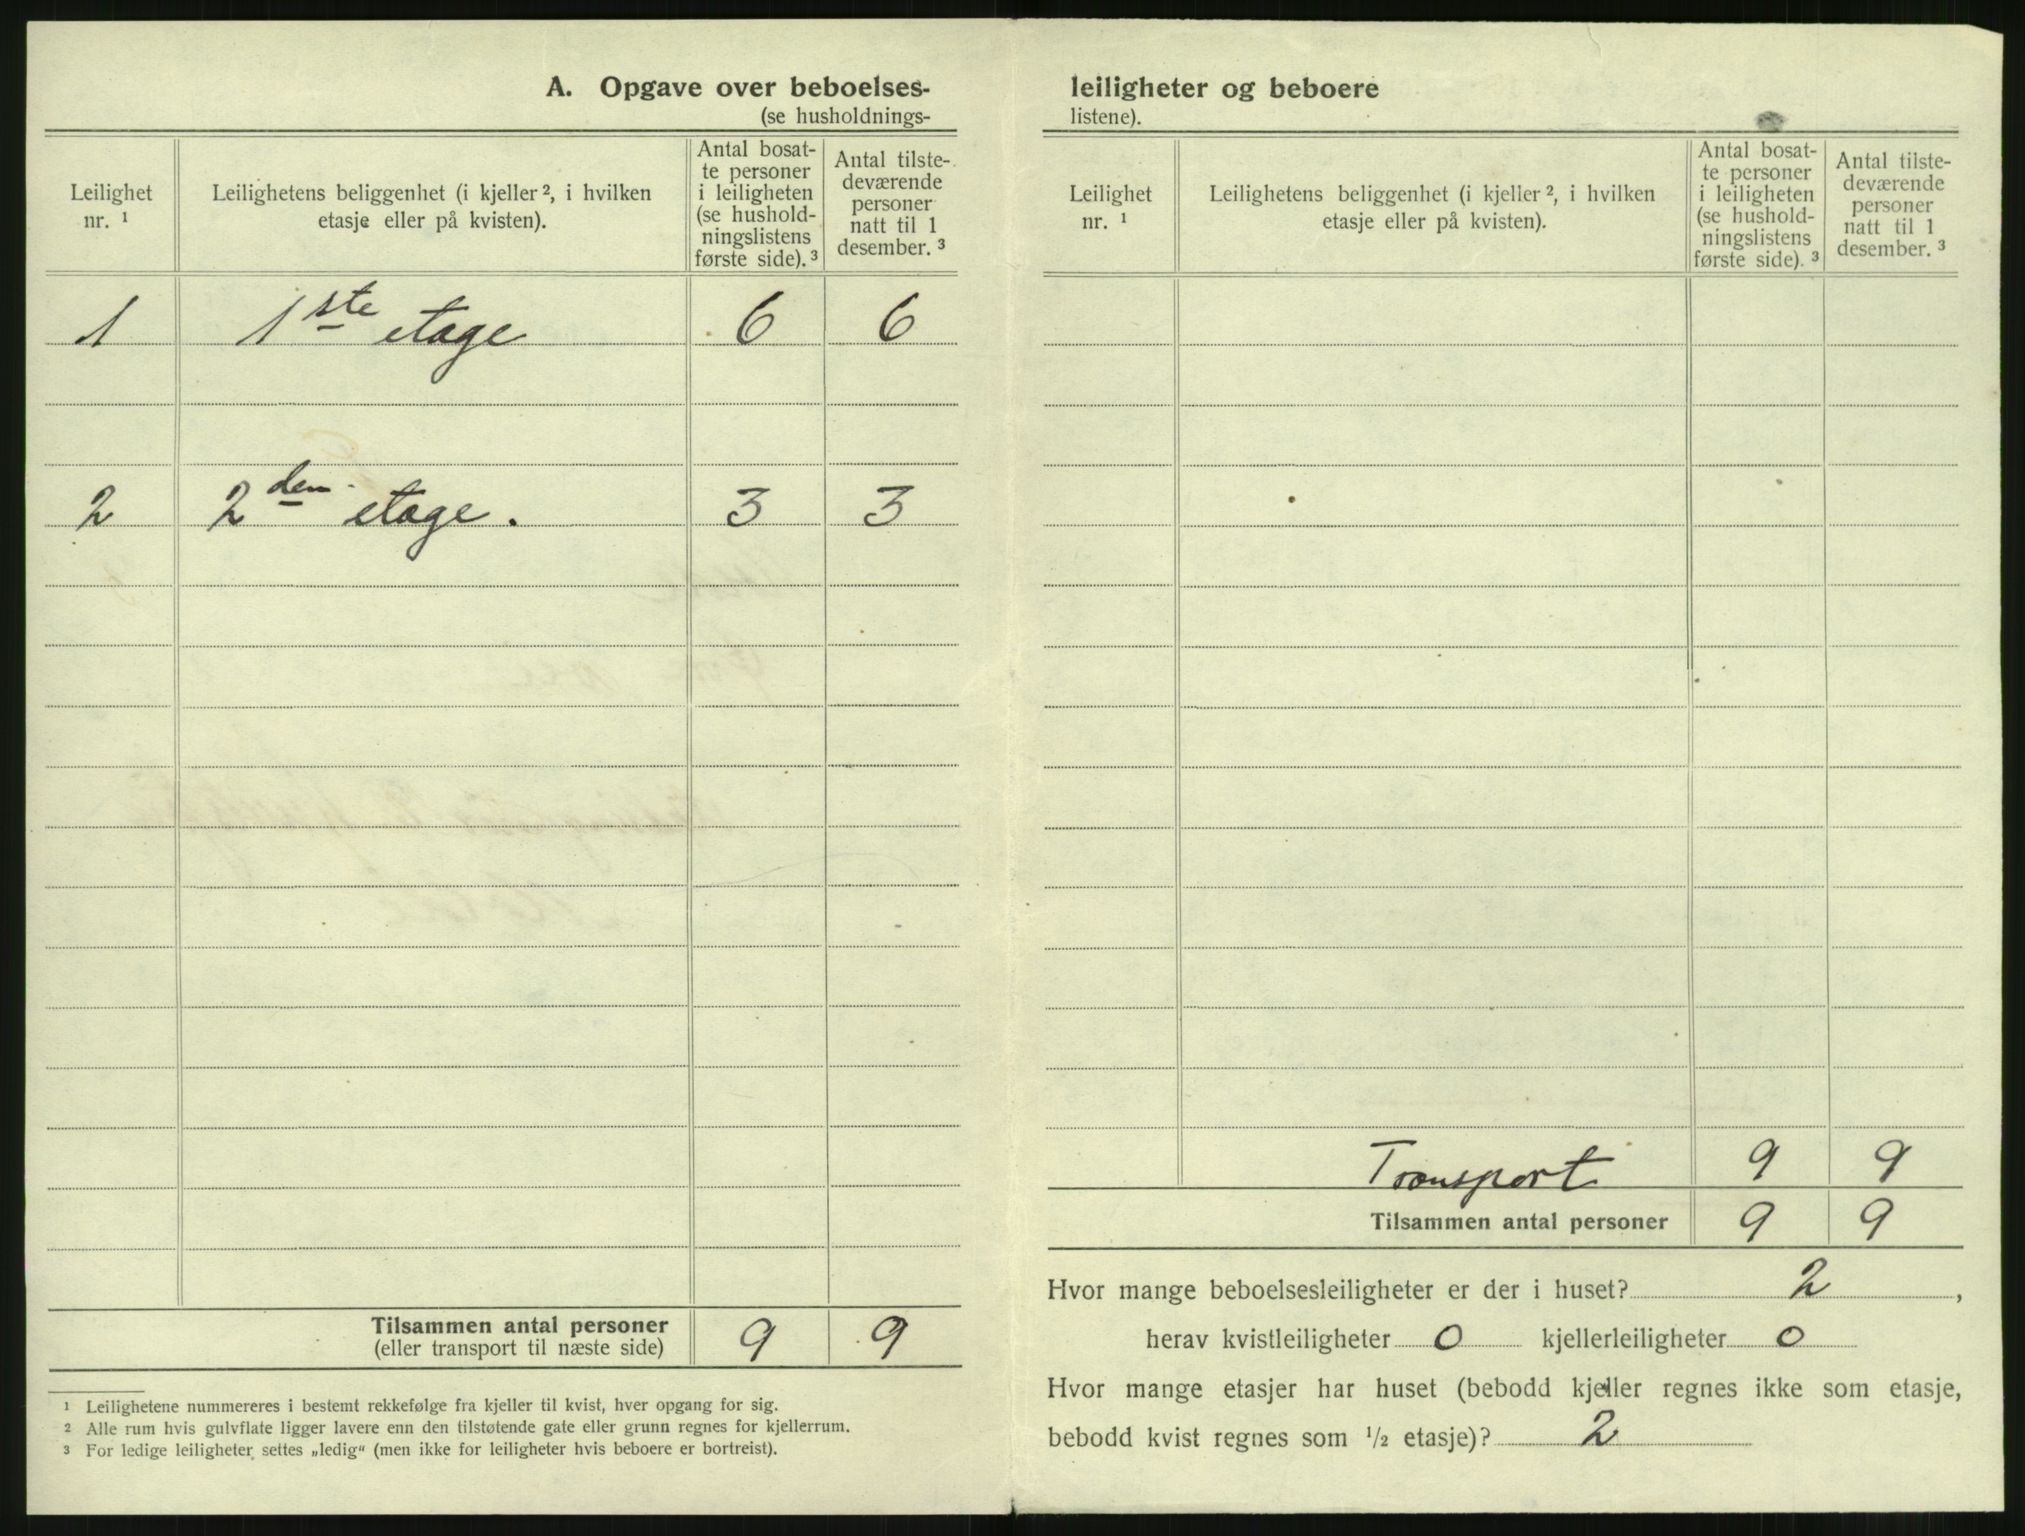 A. Opgave over beboelses-
(se husholdnings-
Leilighet
nr. ¹
Leilighetens beliggenhet (i kjeller ², i hvilken
etasje eller på kvisten).
Antal bosat-
te personer
i leiligheten
(se hushold-
ningslistens
første side). ³
Antal tilste-
deværende
personer
natt til 1
desember. ³
1 1ste etage 6 6
2 2den etage. 3 3
Tilsammen antal personer 9 9
(eller transport til næste side)
¹ Leilighetene nummereres i bestemt rekkefølge fra kjeller til kvist, hver opgang for sig.
² Alle rum hvis gulvflate ligger lavere enn den tilstøtende gate eller grunn regnes for kjellerrum.
³ For ledige leiligheter settes „ledig“ (men ikke for leiligheter hvis beboere er bortreist).
leiligheter og beboere
listene).
Leilighet
nr. ¹
Leilighetens beliggenhet (i kjeller ², i hvilken
etasje eller på kvisten).
Antal bosat-
te personer
i leiligheten
(se hushold-
ningslistens
første side). ³
Antal tilste-
deværende
personer
natt til 1
desember. ³
Transport 9 9
Tilsammen antal personer 9 9
Hvor mange beboelsesleiligheter er der i huset? 2,
herav kvistleiligheter 0 kjellerleiligheter 0
Hvor mange etasjer har huset (bebodd kjeller regnes ikke som etasje,
bebodd kvist regnes som ½ etasje)? 2